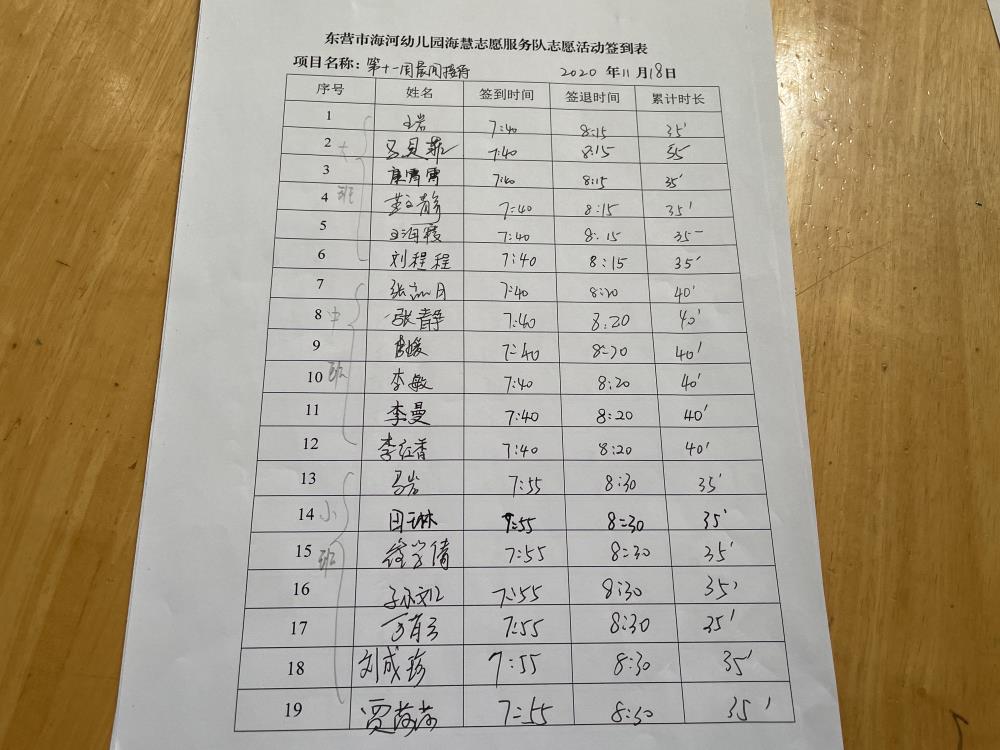 东营市海河幼儿园海慧志愿服务队志愿活动签到表
项目名称：第十一周晨间接待 2020 年 11 月 18 日
序号 姓名 签到时间 签退时间 累计时长
1 王岩 7:40 8:15 35'
2 7:40 8:15 35
3 康霄霄 7:40 8:15 35'
4 7:40 8:15 35'
5 7:40 8:15 35
6 刘程程 7:40 8:15 35'
7 7:40 8:20 40'
8 张静 7:40 8:20 40'
9 7:40 8:20 40'
10 李敏 7:40 8:20 40'
11 李曼 7:40 8:20 40'
12 李红香 7:40 8:20 40'
13 马岩 7:55 8:30 35'
14 田琳 7:55 8:30 35'
15 7:55 8:30 35'
16 7:55 8:30 35'
17 7:55 8:30 35'
18 刘成珍 7:55 8:30 35'
19 7:55 8:30 35'
大班
中班
小班